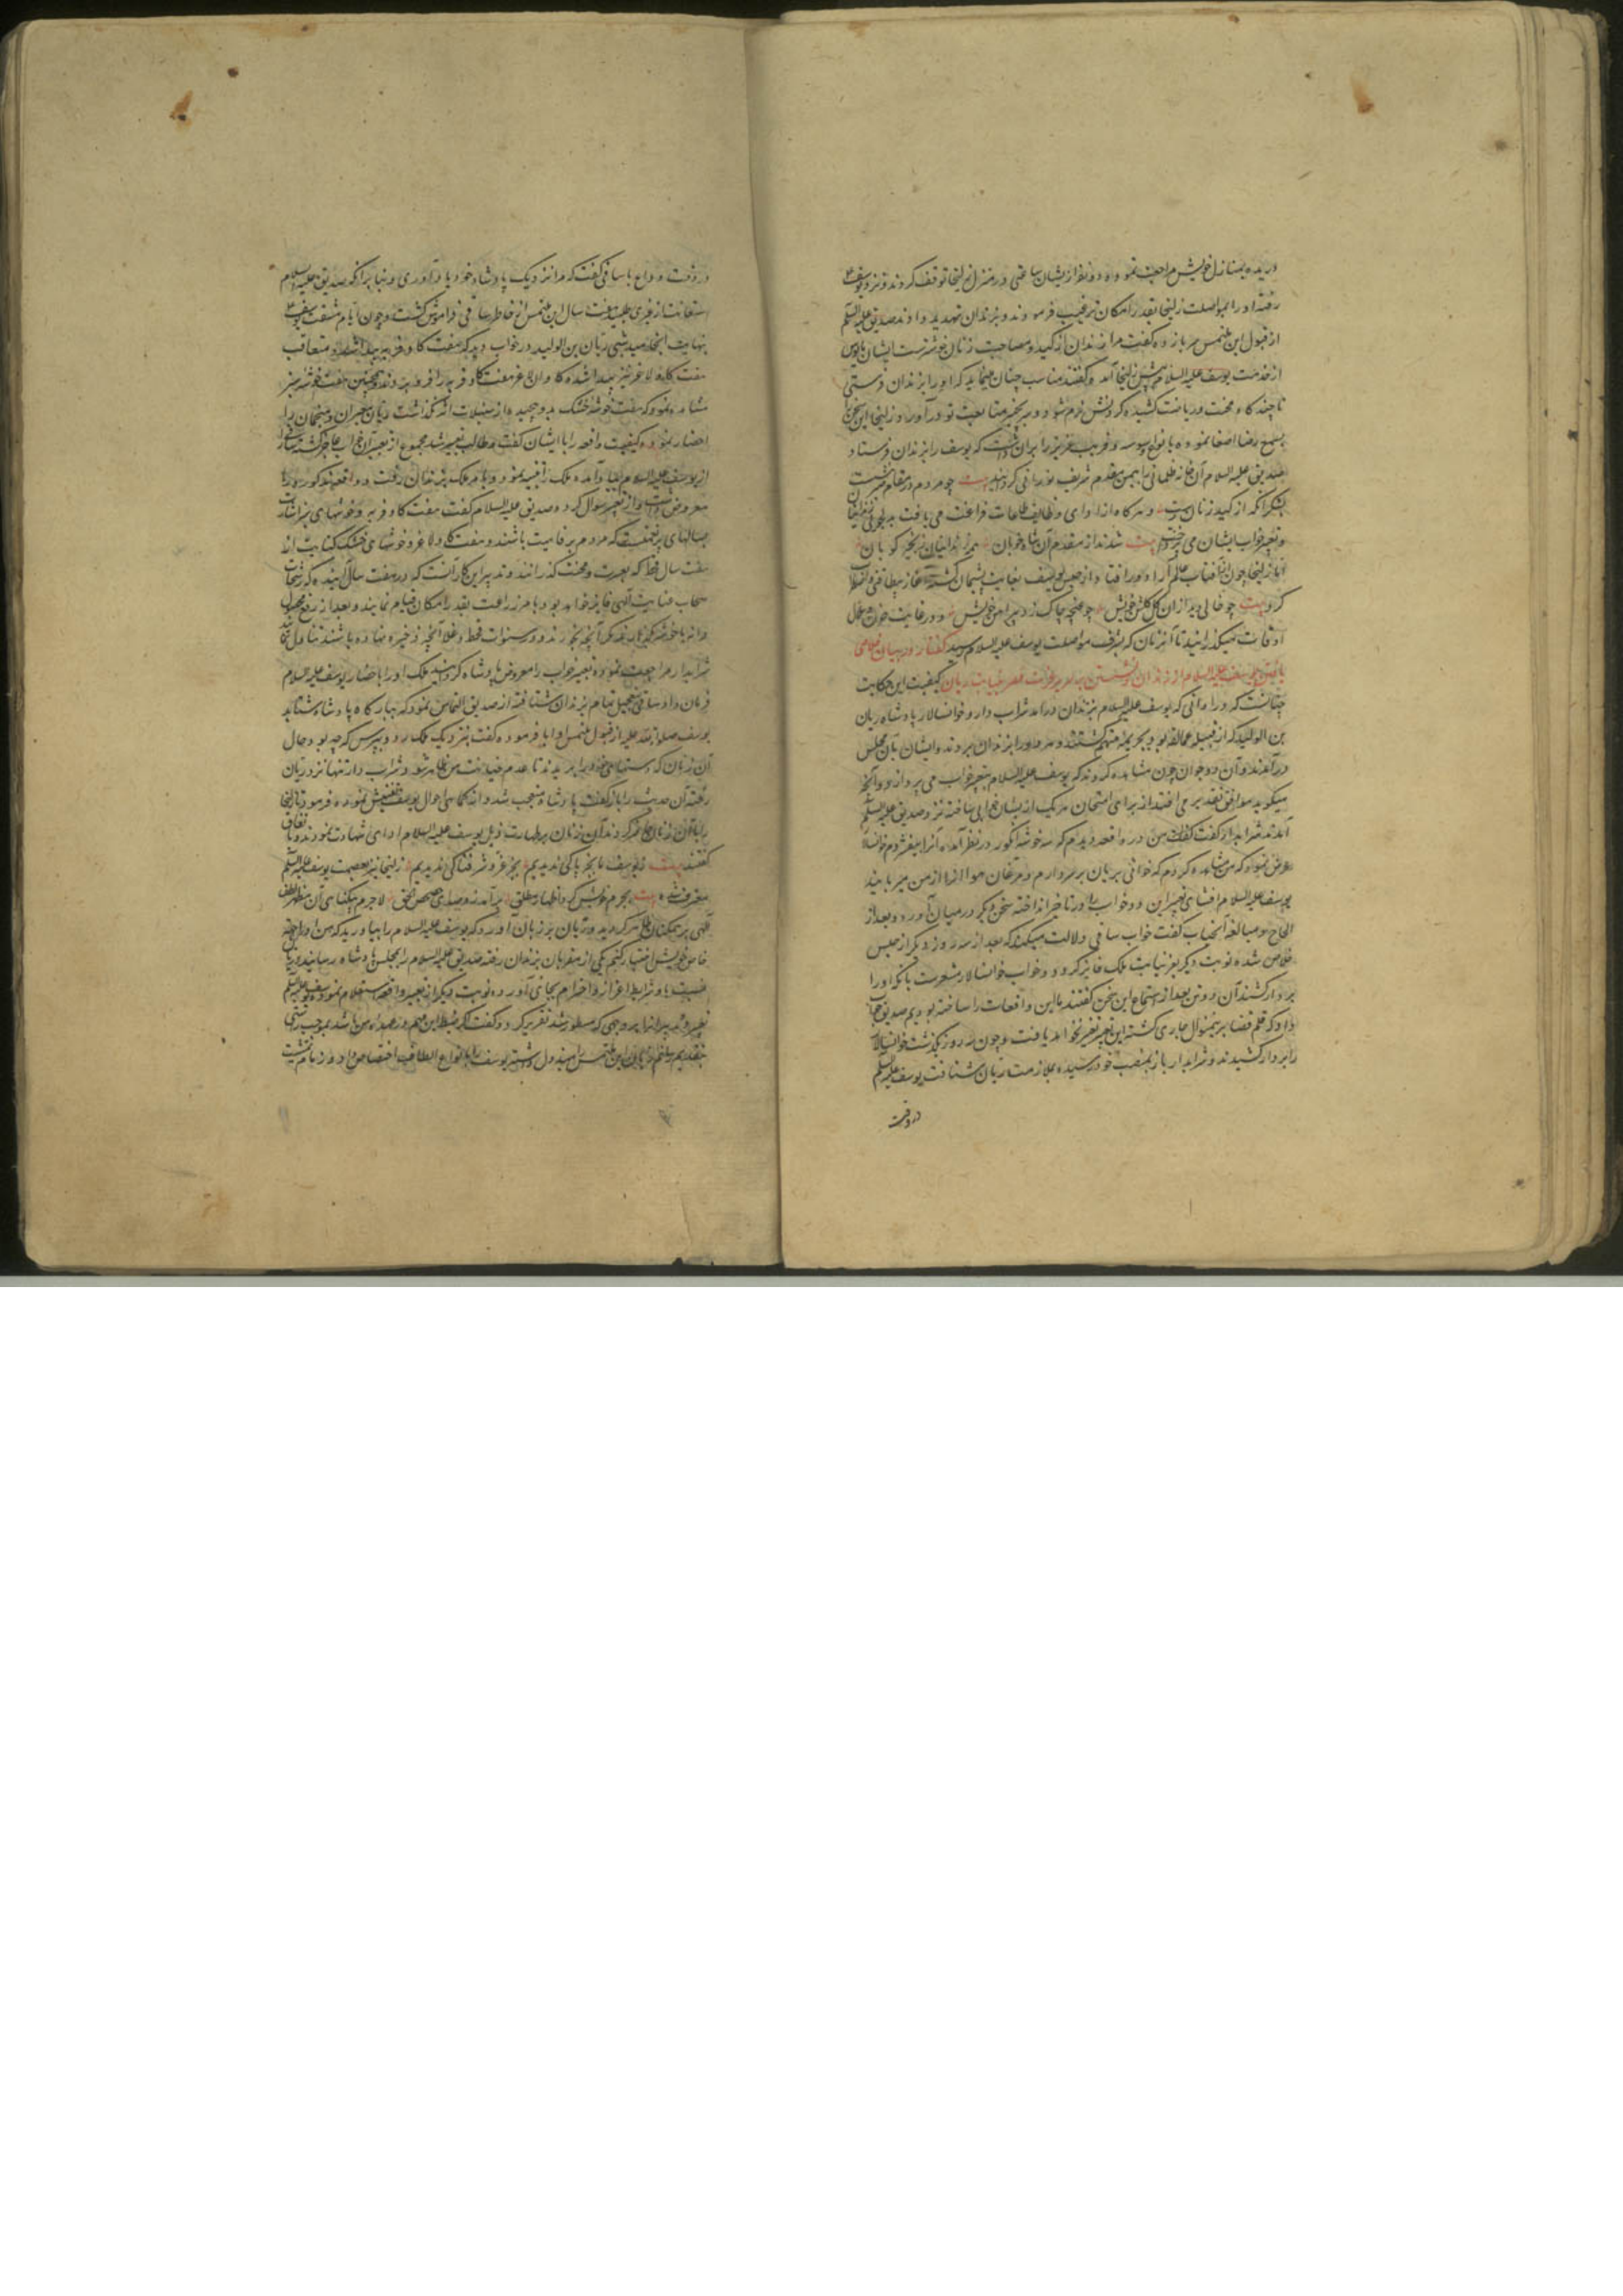 دریده بمنازل خویش مراجعت نموده و دو نفر ازیشان ساعتی در منزل زلیخا توقف کردند و نزد یوسف
رفته او را بمواصلت زلیخا بقدر امکان ترغیب فرمودند و بزندان تهدید دادند صدیق علیه السلام
از قبول این ملتمس سر باز زده گفت مرا زندان از کید و مصاحبت زنان خوشترست ایشان مایوس
از خدمت یوسف علیه السلام پیش زلیخا آمده گفتند مناسب چنان مینماید که او را بزندان فرستی
تا چندگاه محنت و ریاضت کشیده گردنش نرم شود و سر بچنبر متابعت تو درآورد و زلیخا این سخن را
بسمع رضا اصغا نموده بانواع وسوسه و فریب عزیز را بران داشت که یوسف را بزندان فرستاد
صدیق علیه السلام آن خانه ظلمانی را بیمن مقدم شریف نورانی گردانید بیت چو مردم در مقام صبر بنشست
بشکرانکه از کید زنان رست و هرگاه از ادای وظایف طاعات فراغت می یافت بدلجوئی زندانیان
و تعبیر خواب ایشان می پرداخت بیت شدند از مقدم آن شاه خوبان همه زندانیان زنجیر کوبان
اما زلیخا چون از آفتاب عالم آرا دور افتاد از حبس یوسف بغایت پشیمان گشته آغاز بیطاقتی و اضطراب
کرد بیت چو خالی دید ازان گل گلشن خویش چو غنچه چاک زد پیراهن خویش و در غایت حزن و ملال
اوقات میگذرانید تا آنزمان که بشرف مواصلت یوسف علیه السلام رسید گفتار در بیان خلاصی
یافتن یوسف علیه السلام از زندان و نشستن بر سریر عزت مصر بنیابت ریان کیفیت این حکایت
چنانست که در اوانی که یوسف علیه السلام بزندان درآمد شراب دار و خوانسالار پادشاه ریان
بن الولید که از قبیله عمالقه بود بجریمه متهم گشتند و هر دو را بزندان بردند و ایشان بآن مجلس
درآمدند و آن دو جوان چون مشاهده کردند که یوسف علیه السلام بتعبیر خواب می پردازد و آنچه
میگوید موافق تقدیر می افتد از برای امتحان هر یک ازیشان خوابی ساخته نزد صدیق علیه السلام
آمدند شرابدار گفت من در واقعه دیدم که سه خوشه انگور در نظر آمده آنرا بیفشردم خوانسالار
معروض نمود که من مشاهده کردم که خوانی بریان بر سر دارم و مرغان هوا آنرا از من میربایند
یوسف علیه السلام افشای تعبیر این دو خواب را در تاخیر انداخته سخن دیگر در میان آورد و بعد از
الحاح و مبالغه آنجناب گفت خواب ساقی دلالت میکند که بعد از سه روز دیگر از حبس
خلاص شده نوبت دیگر بعز نیابت ملک فایز گردد و خواب خوانسالار مشعرست بانکه او را
بر دار کشند آن دو تن بعد از استماع این سخن گفتند ما این واقعات را ساخته بودیم صدیق جواب
داد که قلم قضا برینمنوال جاری گشته این تعبیر تغییر نخواهد یافت و چون سه روز بگذشت خوانسالار
را بر دار کشیدند و شرابدار باز بمنصب خود رسیده بملازمت ریان شتافت یوسف علیه السلام
در وقت
در وقت وداع با ساقی گفت که مرا نزدیک پادشاه خود یاد آوری و بنا برانکه صدیق علیه السلام
استعانت از غیری طلبید هفت سال این ملتمس از خاطر ساقی فراموش گشت و چون ایام مشقت یوسف
بنهایت انجامید شبی ریان بن الولید در خواب دید که هفت گاو فربه پیدا شده و متعاقب
هفت گاو لاغر نیز پیدا شده گاوان لاغر هفت گاو فربه را فرو بردند و همچنین هفت خوشه سبز
مشاهده نمود که هفت خوشه خشک بدو پیچیده از سنبلات اثر نگذاشت ریان معبران و منجمان را
احضار نموده کیفیت واقعه را با ایشان گفت و طالب تعبیر شد مجموع از تعبیر آن خواب عاجز گشته ساقی را
از یوسف علیه السلام بیاد آمده ملک را تنبیه نمود و بامر ملک بزندان رفت و واقعه مذکوره را
معروض داشت و از تعبیر سوال کرد و صدیق علیه السلام گفت هفت گاو فربه و خوشهای سبز اشارت
بسالهای پرنعمتست که مردم برفاهیت باشند و هفت گاو لاغر و خوشهای خشک کنایت از
هفت سال قحط که بعسرت و محنت گذرانند و تدبیر این کار آنست که در هفت سال آینده که رشحات
سحاب عنایت الهی فایز خواهد بود بامر زراعت بقدر امکان قیام نمایند و بعد از رفع محصول
دانه با خوشه بگذارند مگر آنچه بخورند و در سنوات قحط و غلا آنچه ذخیره نهاده باشند تناول نمایند
شرابدار مراجعت نموده تعبیر خواب را معروض پادشاه گردانید ملک او را باحضار یوسف علیه السلام
فرمان داد و ساقی بتعجیل تمام بزندان شتافته از صدیق التماس نمود که ببارگاه پادشاه شتابد
یوسف صلوات الله علیه از قبول ملتمس او ابا فرموده گفت بنزدیک ملک رو و بپرس که چه بود حال
آن زنان که دستهای خود را بریدند تا عدم خیانت من ظاهر شود و شراب دار تنها نزد ریان
رفته آن حدیث را بازگفت پادشاه متعجب شد و از کماهی احوال یوسف تفتیش نموده فرمود تا زلیخا
را با آن زنان حاضر کردند آن زنان بر طهارت ذیل یوسف علیه السلام ادای شهادت نمودند و باتفاق
گفتند بیت ز یوسف ما بجز پاکی ندیدیم بجز عز و شرفناکی ندیدیم زلیخا نیز بعصمت یوسف علیه السلام
معترف شده بیت بجرم خویش کرد اظهار مطلق برآمد زو صدای حصحص الحق لاجرم بیگناهی آن مظهر لطف
الهی بر همگنان ظاهر گردید و ریان بر زبان آورد که یوسف علیه السلام را بیاورید که من او را بجهة
خاص خویش اختیار کنم یکی از مقربان بزندان رفته صدیق علیه السلام را بمجلس پادشاه رسانید و ریان
نسبت باو شرایط اعزاز و احترام بجای آورده نوبت دیگر از تعبیر واقعه استعلام نمود یوسف علیه السلام
تعبیر و تدبیر آنرا بروجهی که مسطور شد تقریر کرد و گفت اگر ضبط این مهم در عهده من باشد بموجب راستی
بتقدیم رسانم و ریان این ملتمس را مبذول داشته یوسف را بانواع الطاف اختصاص داد و زمام مشیت